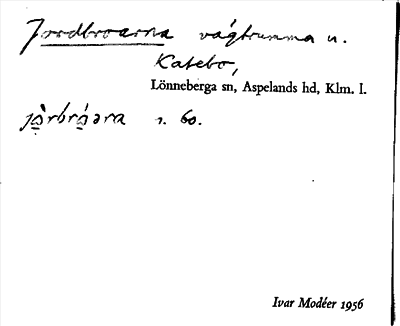 Jordbroarna vägtrumma n.
Katebo,
Lönneberga sn, Aspelands hd, Klm. l.
jo̠rbró̠ara 1. 60.
Ivar Modéer 1956